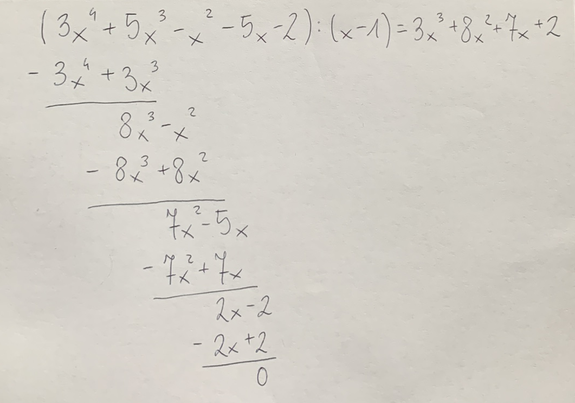 (3x⁴ + 5x³ - x² - 5x - 2) : (x - 1) = 3x³ + 8x² + 7x + 2
- 3x⁴ + 3x³
8x³ - x²
- 8x³ + 8x²
7x² - 5x
- 7x² + 7x
2x - 2
- 2x + 2
0